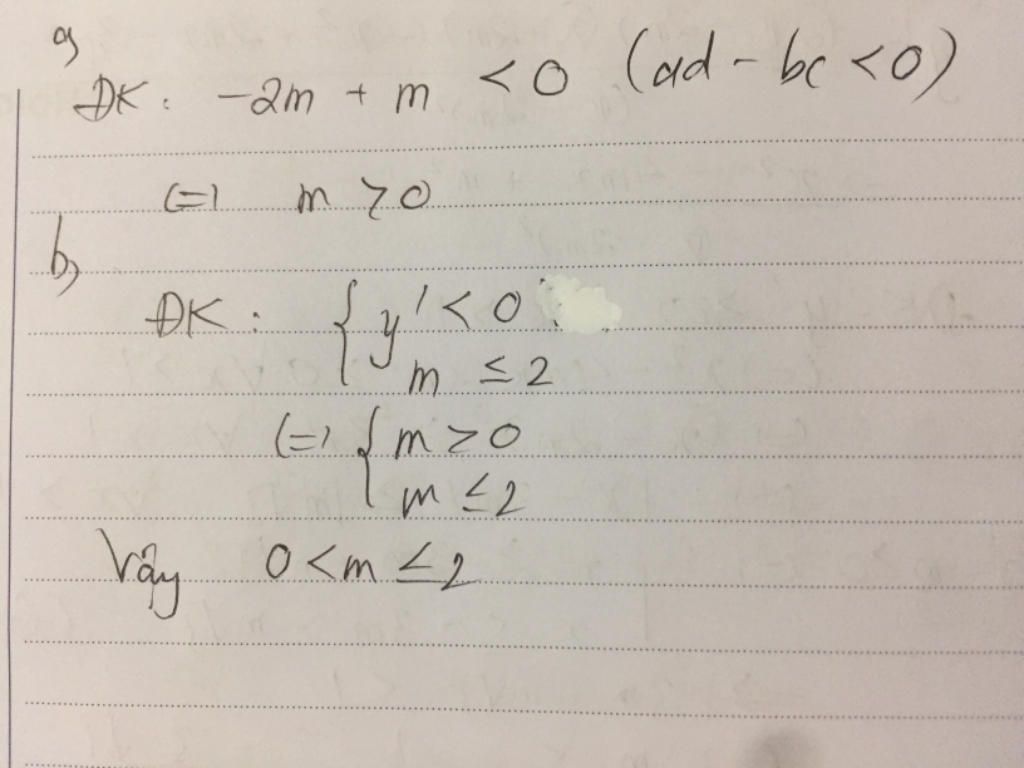 a)
ĐK: -2m + m < 0 (ad - bc < 0)
(=) m > 0
b)
ĐK: { y' < 0
m ≤ 2
(=) { m > 0
m ≤ 2
Vậy 0 < m ≤ 2